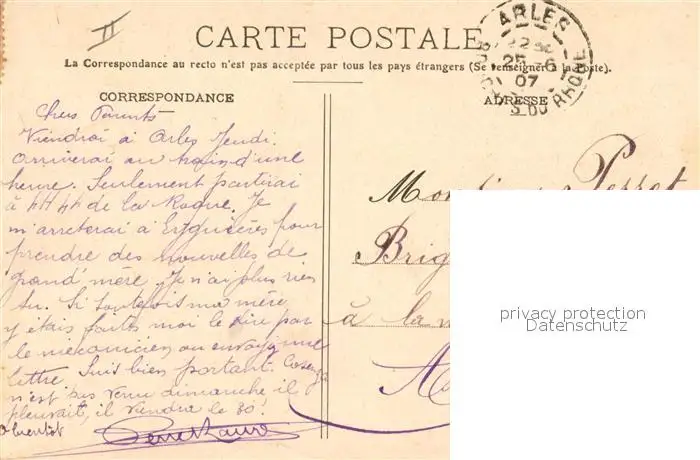 II
CARTE POSTALE
La Correspondance au recto n'est pas acceptée par tous les pays étrangers (Se renseigner à la Poste).
ARLES
25-6
07
DU RHONE
CORRESPONDANCE
ADRESSE
Chers Parents
Viendrai à Arles Jeudi.
arriverai au train d'une
heure. Seulement partirai
à 4H 44 de la Roque. Je
m'arreterai à Eyguières pour
prendre des nouvelles de
grand'mère. Je n'ai plus rien
su. Si toutefois ma mère
y étais faites moi le dire par
le mécanicien ou envoyez une
lettre. Suis bien portant.
n'est pas venu dimanche, il
pleuvait, il viendra le 30.
a bientôt
Perret
Brig
à la
A
privacy protection
Datenschutz